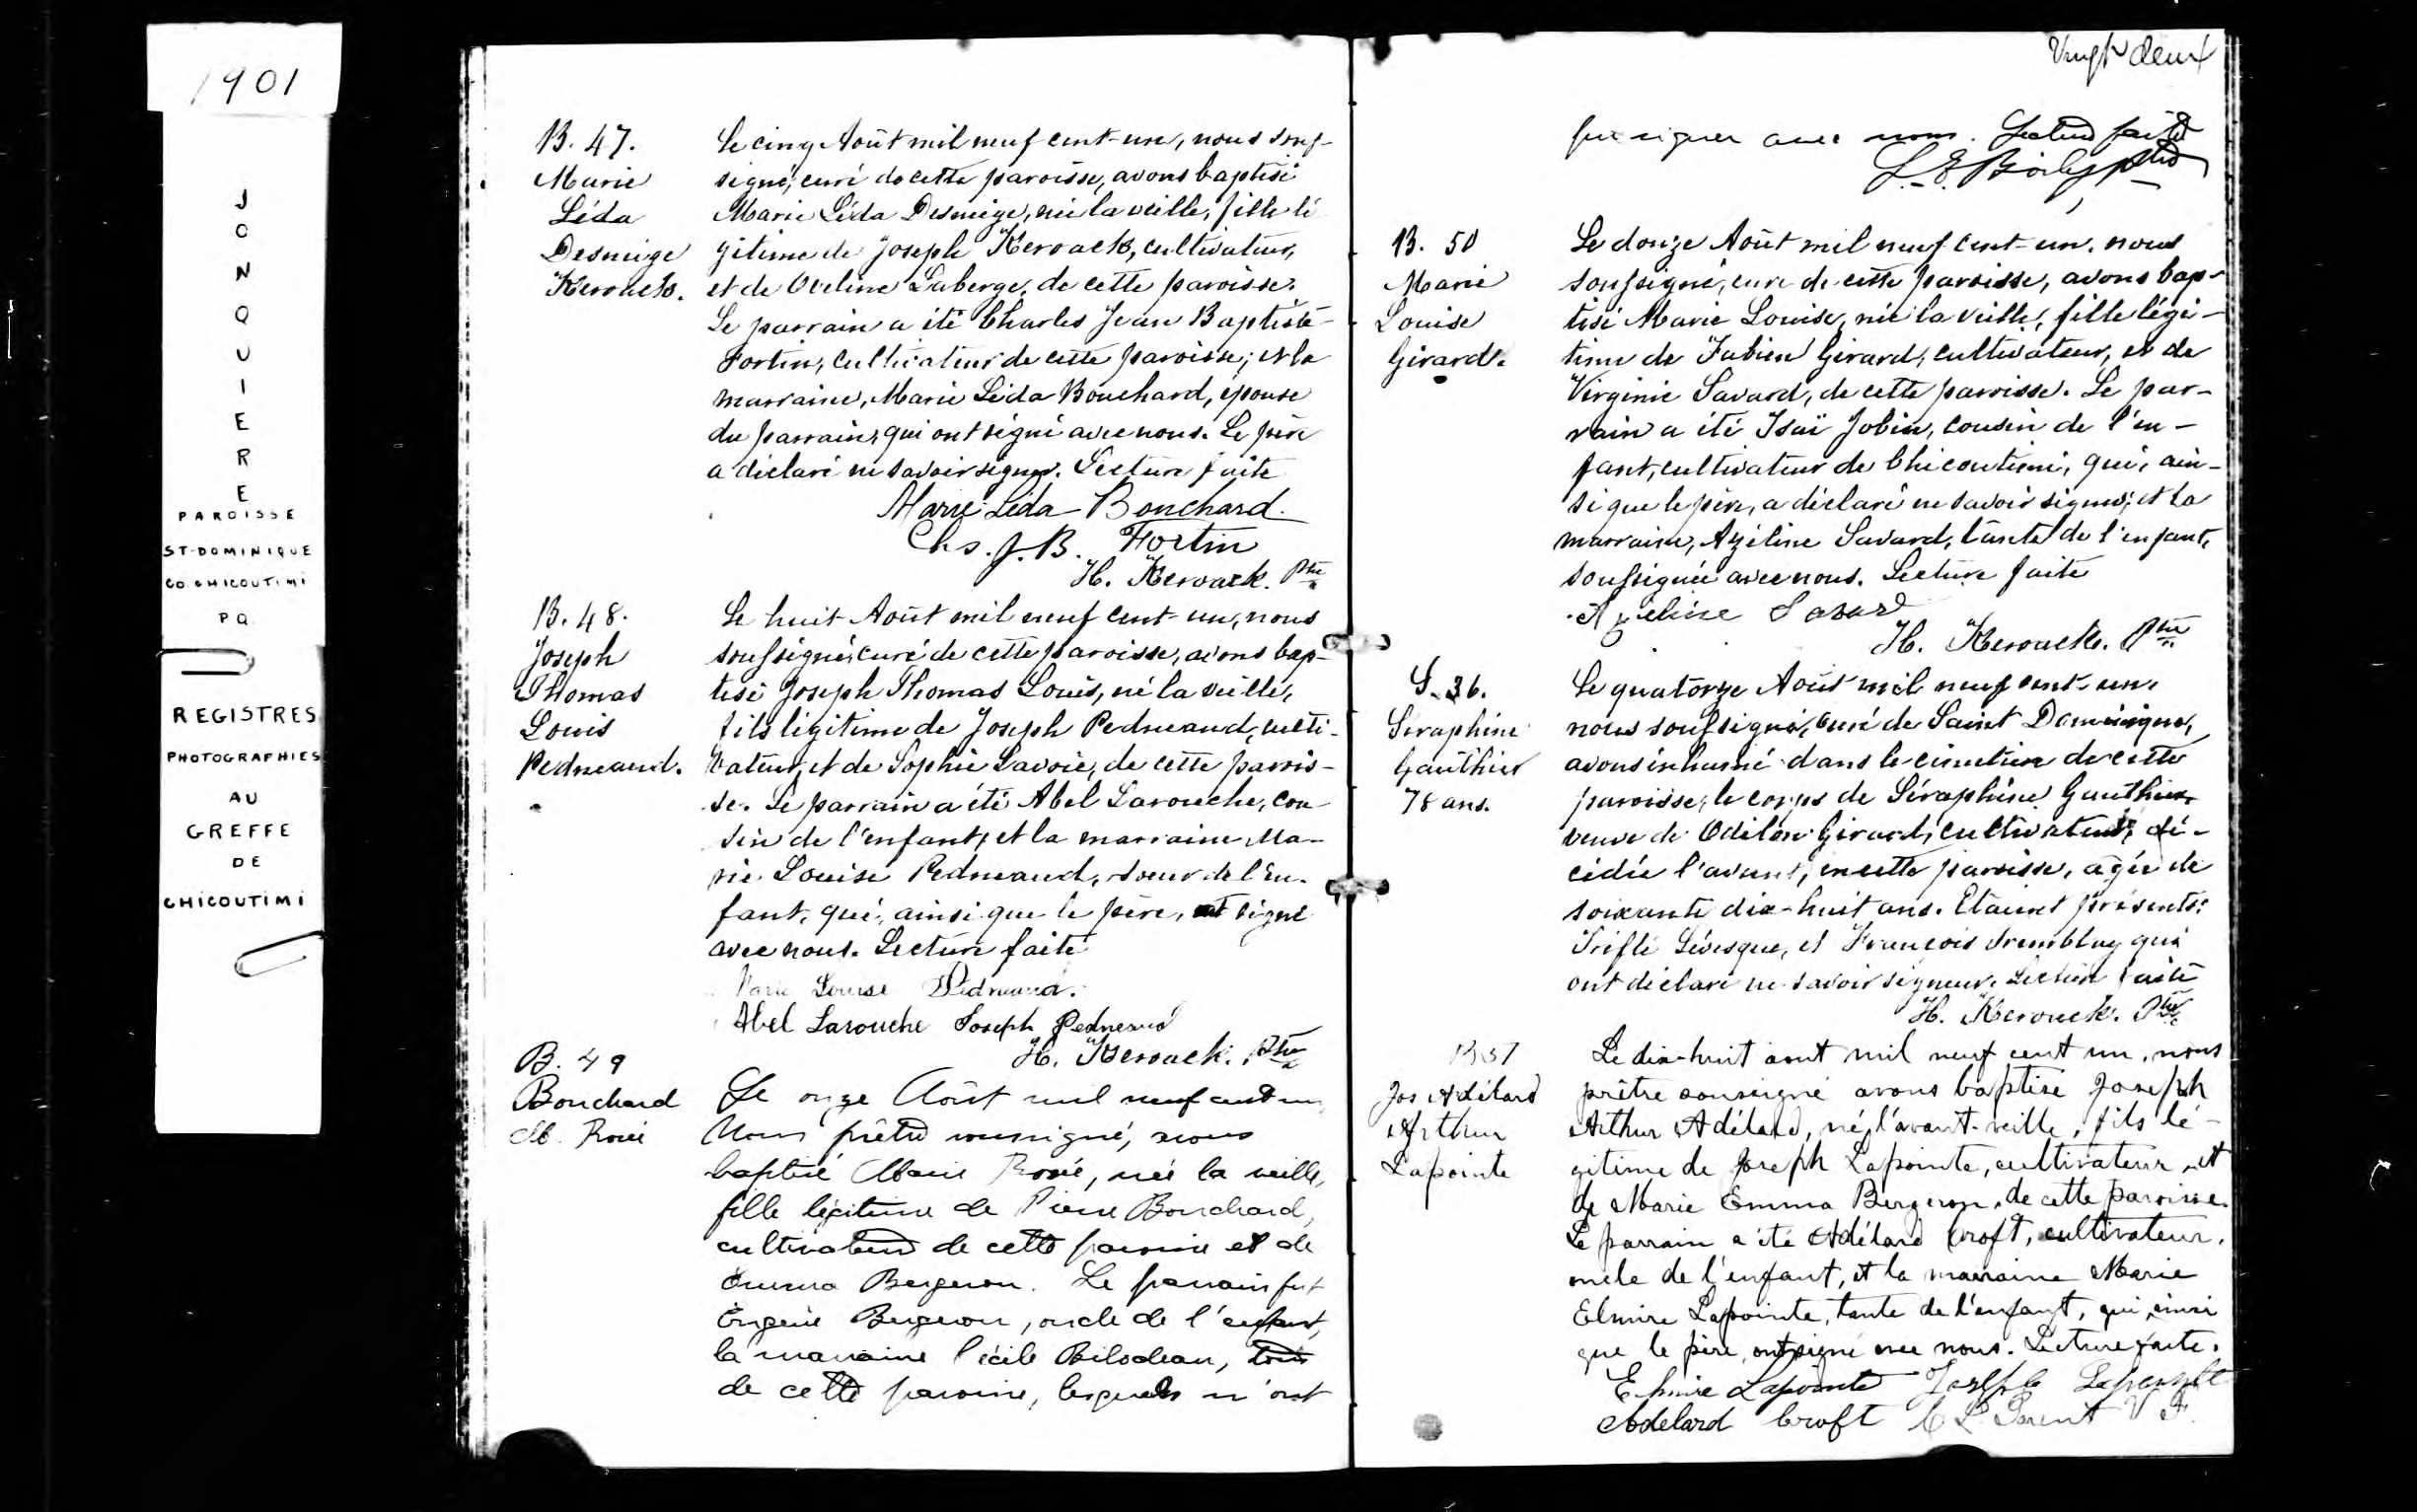 1901
JONQUIERE
PAROISSE
ST-DOMINIQUE
CO. CHICOUTIMI
P Q
REGISTRES
PHOTOGRAPHIES
AU
GREFFE
DE
CHICOUTIMI
B. 47.
Marie
Léda
Desneige
Kerouack.
Le cinq Août mil neuf cent-un, nous sous-
signé, curé de cette paroisse, avons baptisé
Marie Léda Desneige, née la veille, fille lé
gitime de Joseph Kerouack, cultivateur,
et de Laberge, de cette paroisse.
Le parrain a été Charles Jean Baptiste
Fortin, cultivateur de cette paroisse; et la
marraine, Marie Léda Bouchard, épouse
du parrain, qui ont signé avec nous. Le père
a déclaré ne savoir signer. Lecture faite
Marie Léda Bouchard.
Chs. J. B. Fortin
H. Kerouack. Ptre
B. 48.
Joseph
Thomas
Louis
Pedneaud.
Le huit Août mil neuf cent-un, nous
soussigné, curé de cette paroisse, avons bap-
tisé Joseph Thomas Louis, né la veille,
fils légitime de Joseph Pedneaud, culti-
vateur, et de Sophie Lavoie, de cette parois-
se. Le parrain a été Abel Larouche, cou-
sin de l'enfant, et la marraine Ma-
rie Louise Pedneaud, soeur de l'en-
fant, qui, ainsi que le père, ont signé
avec nous. Lecture faite
Marie Louise Pedneaud.
Abel Larouche Joseph Pedneaud
H. Kerouack. Ptre
B. 49
Bouchard
M. Rosée
Le onze Août mil neuf cent un
Nous prêtre soussigné, avons
baptisé Marie Rosée, née la veille,
fille légitime de Pierre Bouchard,
cultivateur de cette paroisse et de
Emma Bergeron. Le parrain fut
Eugène Bergeron, oncle de l'enfant,
la marraine Cécile Bilodeau, tous
de cette paroisse, lesquels n'ont
Vingt deux
pu signer avec nous. Lecture faite
B. 50
Marie
Louise
Girard.
Le douze Août mil neuf cent-un, nous
soussigné, curé de cette paroisse, avons bap-
tisé Marie Louise, née la veille, fille légi-
time de Fabien Girard, cultivateur, et de
Virginie Savard, de cette paroisse. Le par-
rain a été Isaï Jobin, cousin de l'en-
fant, cultivateur de Chicoutimi, qui, ain-
si que le père, a déclaré ne savoir signer; et la
marraine, Azéline Savard, tante de l'enfant,
soussignée avec nous. Lecture faite
Azeline Savard
H. Kerouack. Ptre
S. 36.
Seraphine
Gauthier
78 ans.
Le quatorze Août mil neuf cent-un,
nous soussigné, curé de Saint Dominique,
avons inhumé dans le cimetière de cette
paroisse, le corps de Séraphine Gauthier
veuve de Odilon Girard, cultivateur, dé-
cédée l'avant, en cette paroisse, agée de
soixante dix-huit ans. Etaient présents:
Lévesque, et François Tremblay qui
ont déclaré ne savoir signer. Lecture faite
H. Kerouack. Ptre
B 51
Jos Adélard
Arthur
Lapointe
Le dix-huit aout mil neuf cent un, nous
prêtre soussigné avons baptisé Joseph
Arthur Adélard, né l'avant-veille, fils lé-
gitime de Joseph Lapointe, cultivateur et
de Marie Emma Bergeron, de cette paroisse.
Le parrain a été Adélard Croft, cultivateur,
oncle de l'enfant, et la marraine Marie
Elmire Lapointe, tante de l'enfant, qui, ainsi
que le père, ont signé avec nous. Lecture faite.
Elmire Lapointe Joseph Lapointe
Adelard Croft Parent V F.